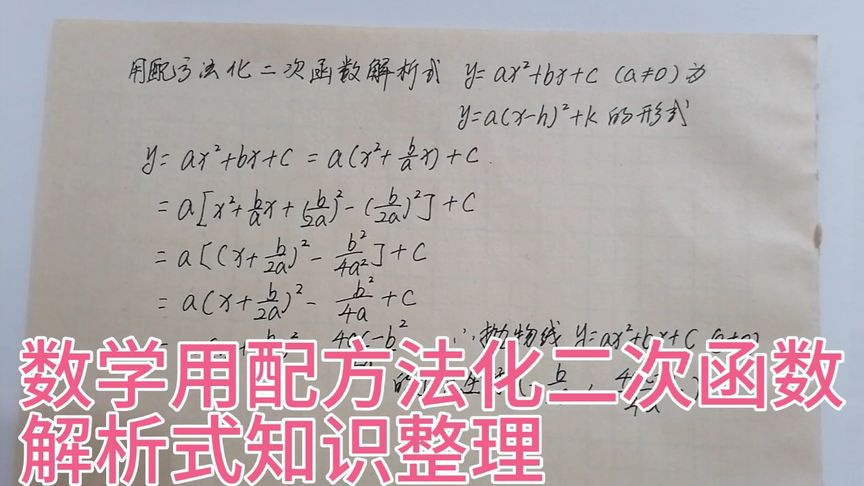 用配方法化二次函数解析式 y=ax²+bx+c (a≠0)为
y=a(x-h)²+k的形式
y=ax²+bx+c=a(x²+b/a x)+c
=a[x²+b/a x+(b/2a)²-(b/2a)²]+c
=a[(x+b/2a)²-b²/4a²]+c
=a(x+b/2a)²-b²/4a+c
∴抛物线 y=ax²+bx+c
数学用配方法化二次函数
解析式知识整理